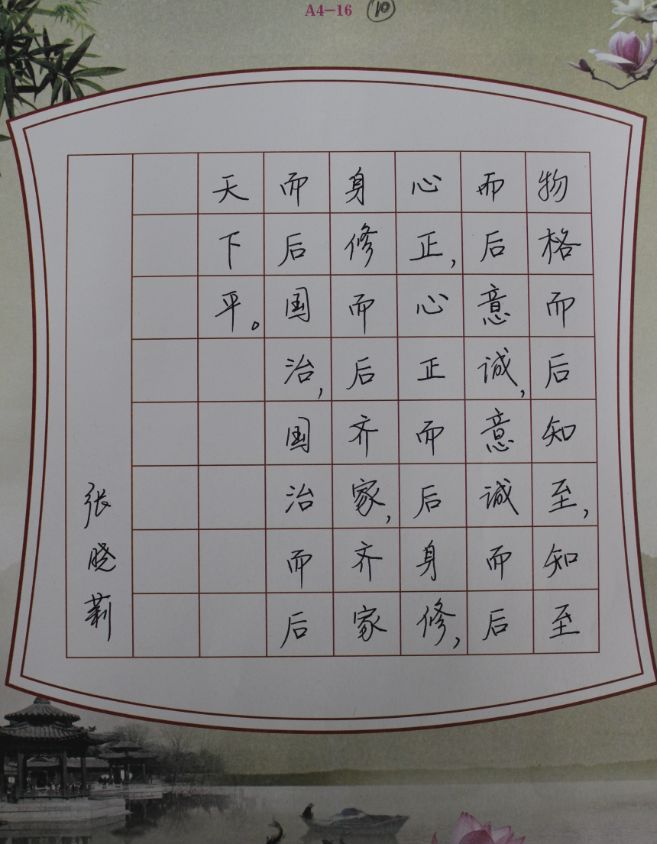 A4-16 ⑩
物格而后知至，知至
而后意诚，意诚而后
心正，心正而后身修，
身修而后齐家，齐家
而后国治，国治而后
天下平。
张晓莉